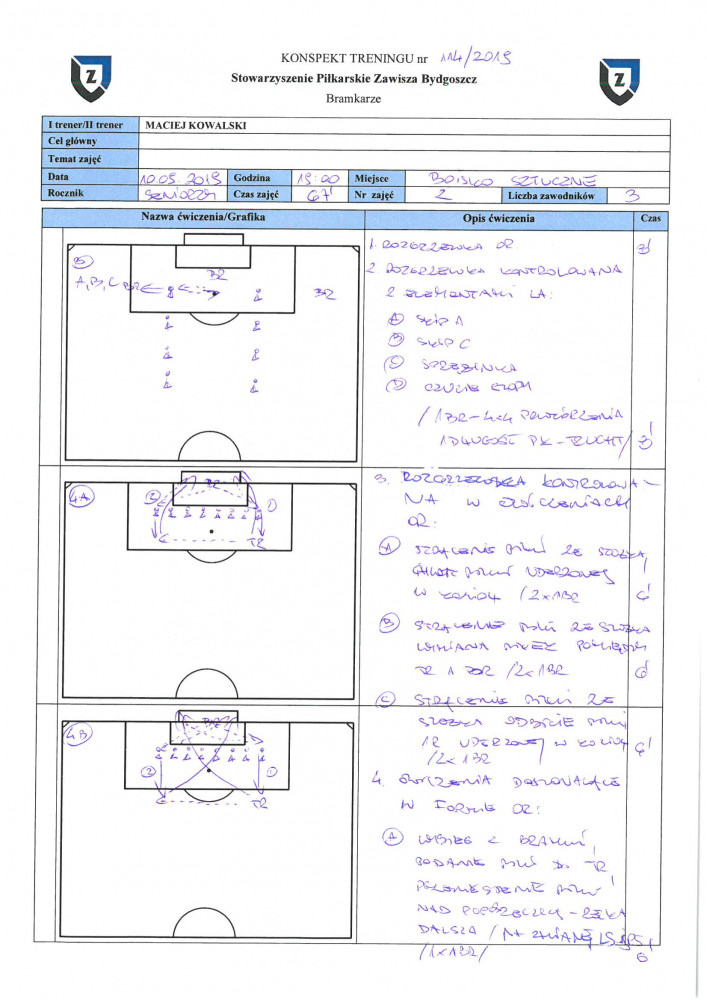 KONSPEKT TRENINGU nr 114/2019
Stowarzyszenie Piłkarskie Zawisza Bydgoszcz
Bramkarze
Z
Z
I trener/II trener MACIEJ KOWALSKI
Cel główny
Temat zajęć
Data 10.05.2019 Godzina 19:00 Miejsce BOISKO SZTUCZNE
Rocznik SENIORZY Czas zajęć 67' Nr zajęć 2 Liczba zawodników 3
Nazwa ćwiczenia/Grafika Opis ćwiczenia Czas
1. ROZGRZEWKA OR 3'
2. ROZGRZEWKA KONTROLOWANA
Z ELEMENTAMI LA:
A SKIP A
B SKIP C
C SPRĘŻYNKA
D
/1BR-4x4 POWTÓRZENIA
1 DŁUGOŚĆ PK - TRUCHT/ 3'
B
BR
A, B, C BR
BR
4A
BR
2
1
TR
3. ROZGRZEWKA KONTROLOWA-
NA W ĆWICZENIACH
OR:
A STRĄCENIE PIŁKI ZE SŁUPKA,
CHWYT PIŁKI UDERZONEJ
W KOZIOŁ /2x1BR 6'
B STRĄCENIE PIŁKI ZE SŁUPKA
WYMIANA PIŁEK POMIĘDZY
TR A BR /2x1BR 6'
C STRĄCENIE PIŁKI ZE
SŁUPKA ODBICIE PIŁKI
UDERZONEJ W KOZIOŁ 6'
/2x1BR
4B
BR
2
1
TR
4. ĆWICZENIA DOSKONALĄCE
W FORMIE OR:
A WYBIEG Z BRAMKI,
PODANIE PIŁKI DO TR,
PRZENIESIENIE PIŁKI
NAD POPRZECZKĄ - RĘKA
DALSZA / NA ZMIANĘ
/1x1BR/ 6'